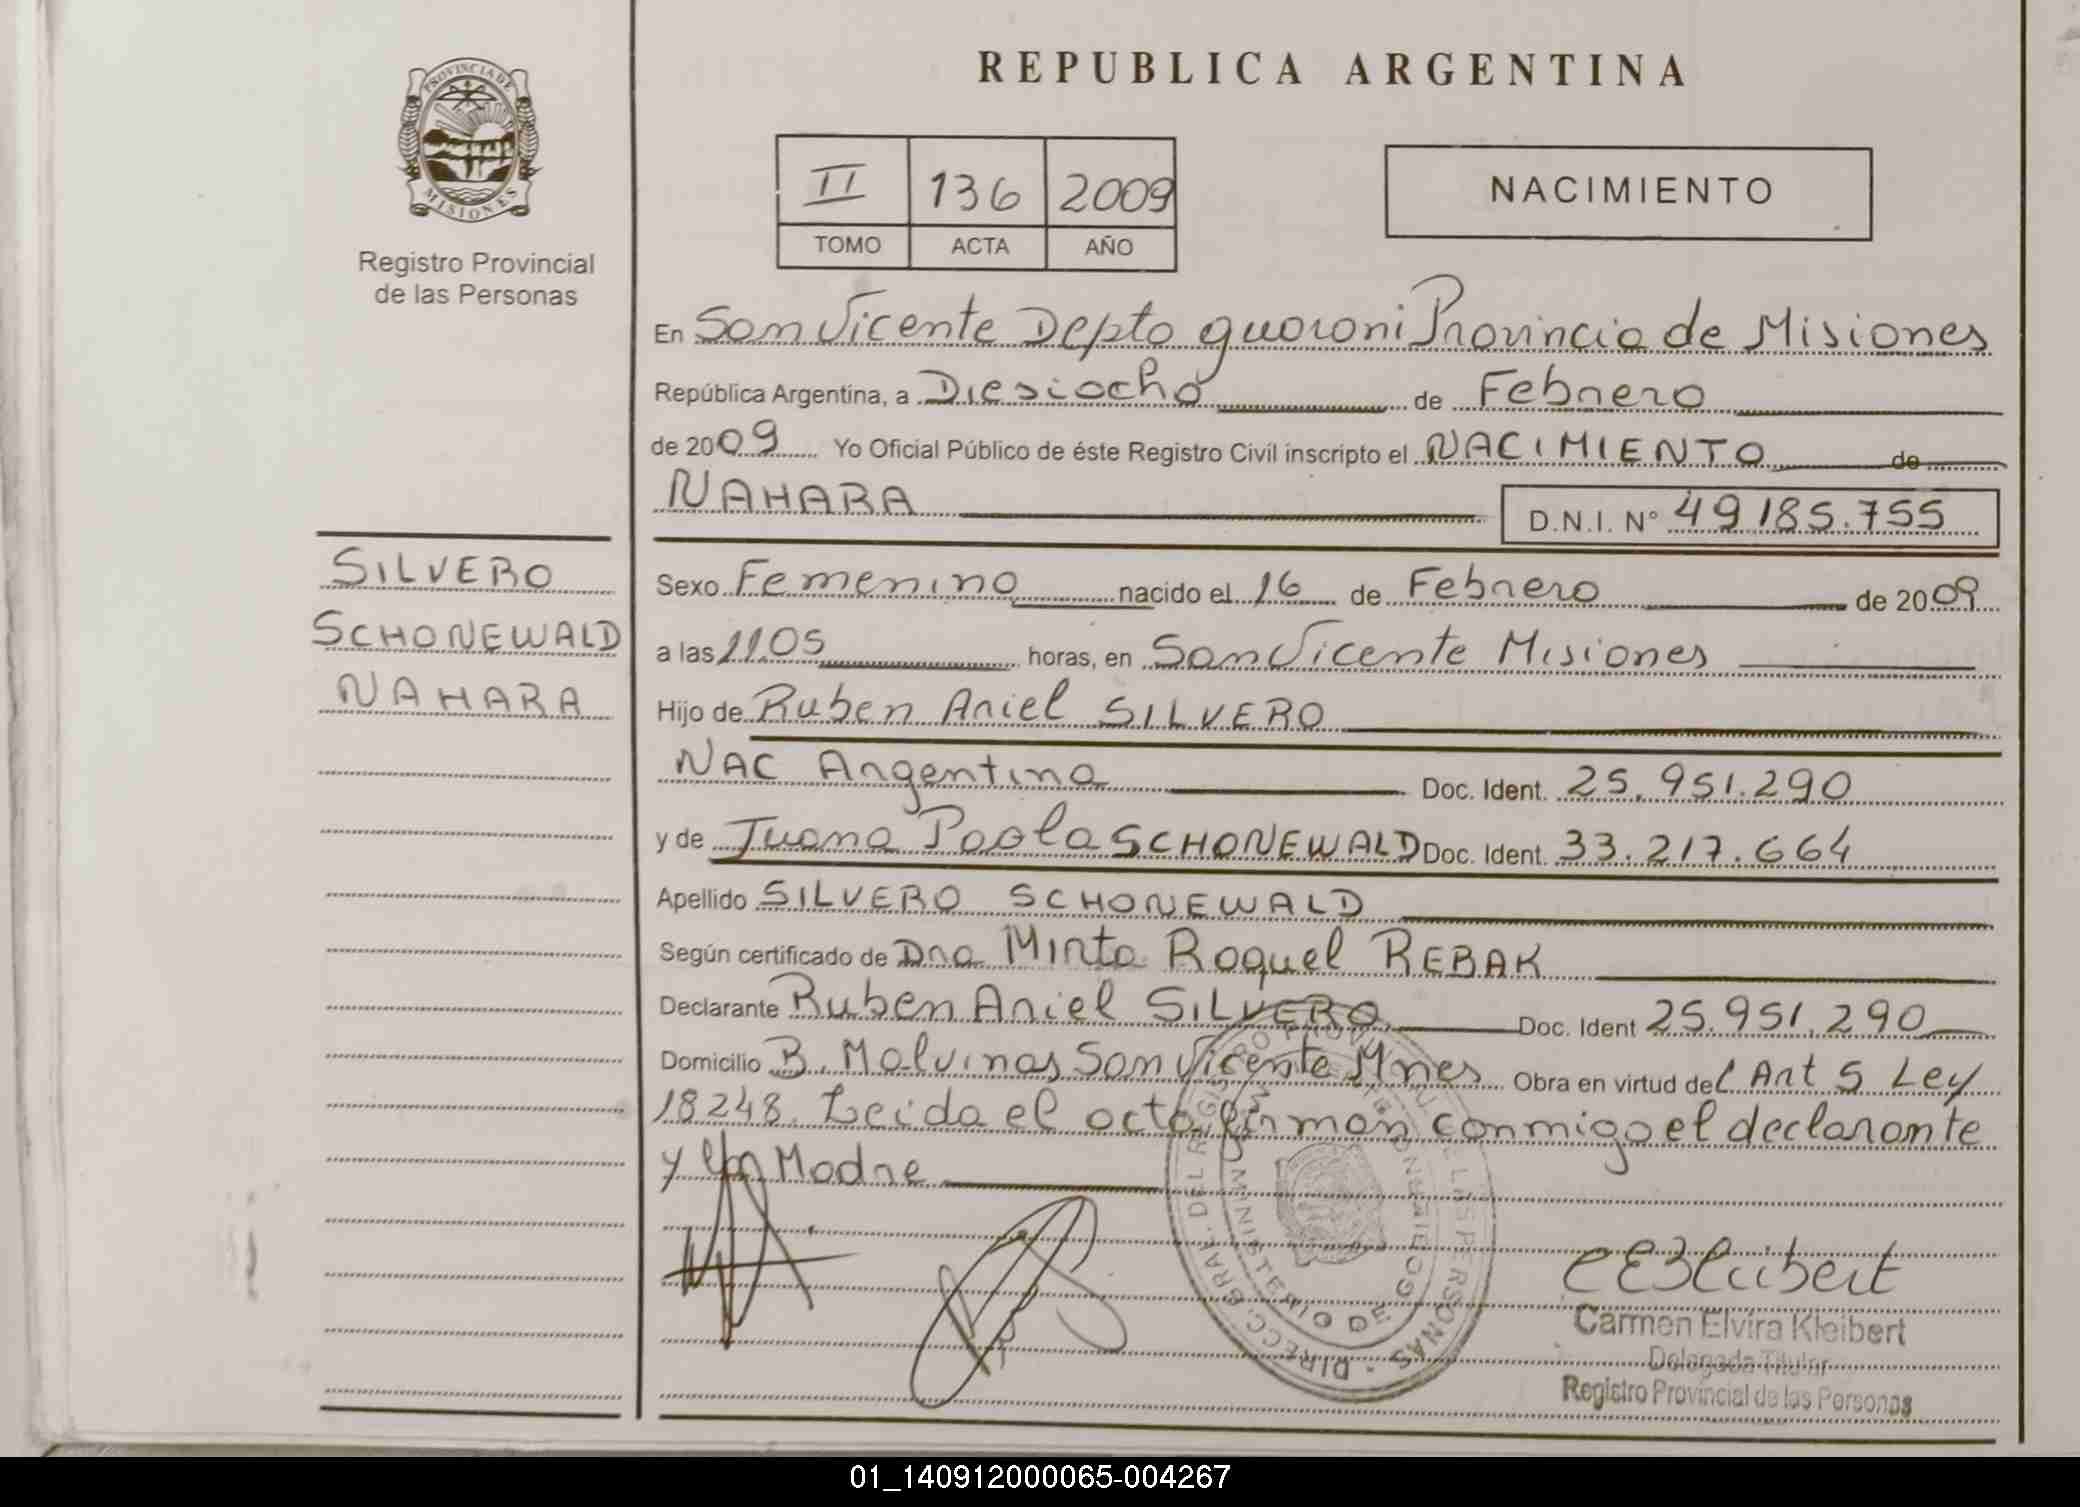 PROVINCIA DE
MISIONES
Registro Provincial
de las Personas
REPUBLICA ARGENTINA
II 136 2009
TOMO ACTA AÑO
NACIMIENTO
En San Vicente Depto guarani Provincia de Misiones
República Argentina, a Diesiocho de Febrero
de 2009 Yo Oficial Público de éste Registro Civil inscripto el NACIMIENTO de
NAHARA D.N.I. N° 49185.755
SILVERO
SCHONEWALD
NAHARA
Sexo Femenino nacido el 16 de Febrero de 2009
a las 11.05 horas, en San Vicente Misiones
Hijo de Ruben Ariel SILVERO
NAC Argentina Doc. Ident. 25.951.290
y de Juana Paola SCHONEWALD Doc. Ident. 33.217.664
Apellido SILVERO SCHONEWALD
Según certificado de Dra Mirta Raquel REBAK
Declarante Ruben Ariel SILVERO Doc. Ident 25.951.290
Domicilio B. Malvinas San Vicente Mnes Obra en virtud del Art 5 Ley
18248. Leida el acta firman conmigo el declarante
y la Madre
DIRECC. GRAL. DEL REGISTRO PROVINCIAL DE LAS PERSONAS
MINISTERIO DE GOBIERNO
MISIONES
Carmen Elvira Kleibert
Delegada Titular
Registro Provincial de las Personas
01_140912000065-004267